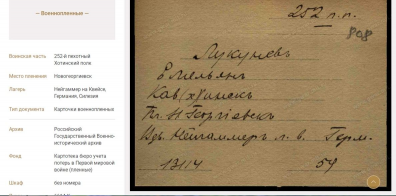 — Военнопленные —
Воинская часть 252-й пехотный
Хотинский полк
Место пленения Новогеоргиевск
Лагерь Нейгаммер на Квейсе,
Германия, Силезия
Тип документа Карточки военнопленных
Архив Российский
Государственный Военно-
исторический архив
Фонд Картотека бюро учета
потерь в Первой мировой
войне (пленные)
Шкаф без номера
252 п.п.
808
Лукуневъ
Емельянъ
Кр. Н Георгiевскъ
Нейгаммеръ л. в. Герм.
13114 59